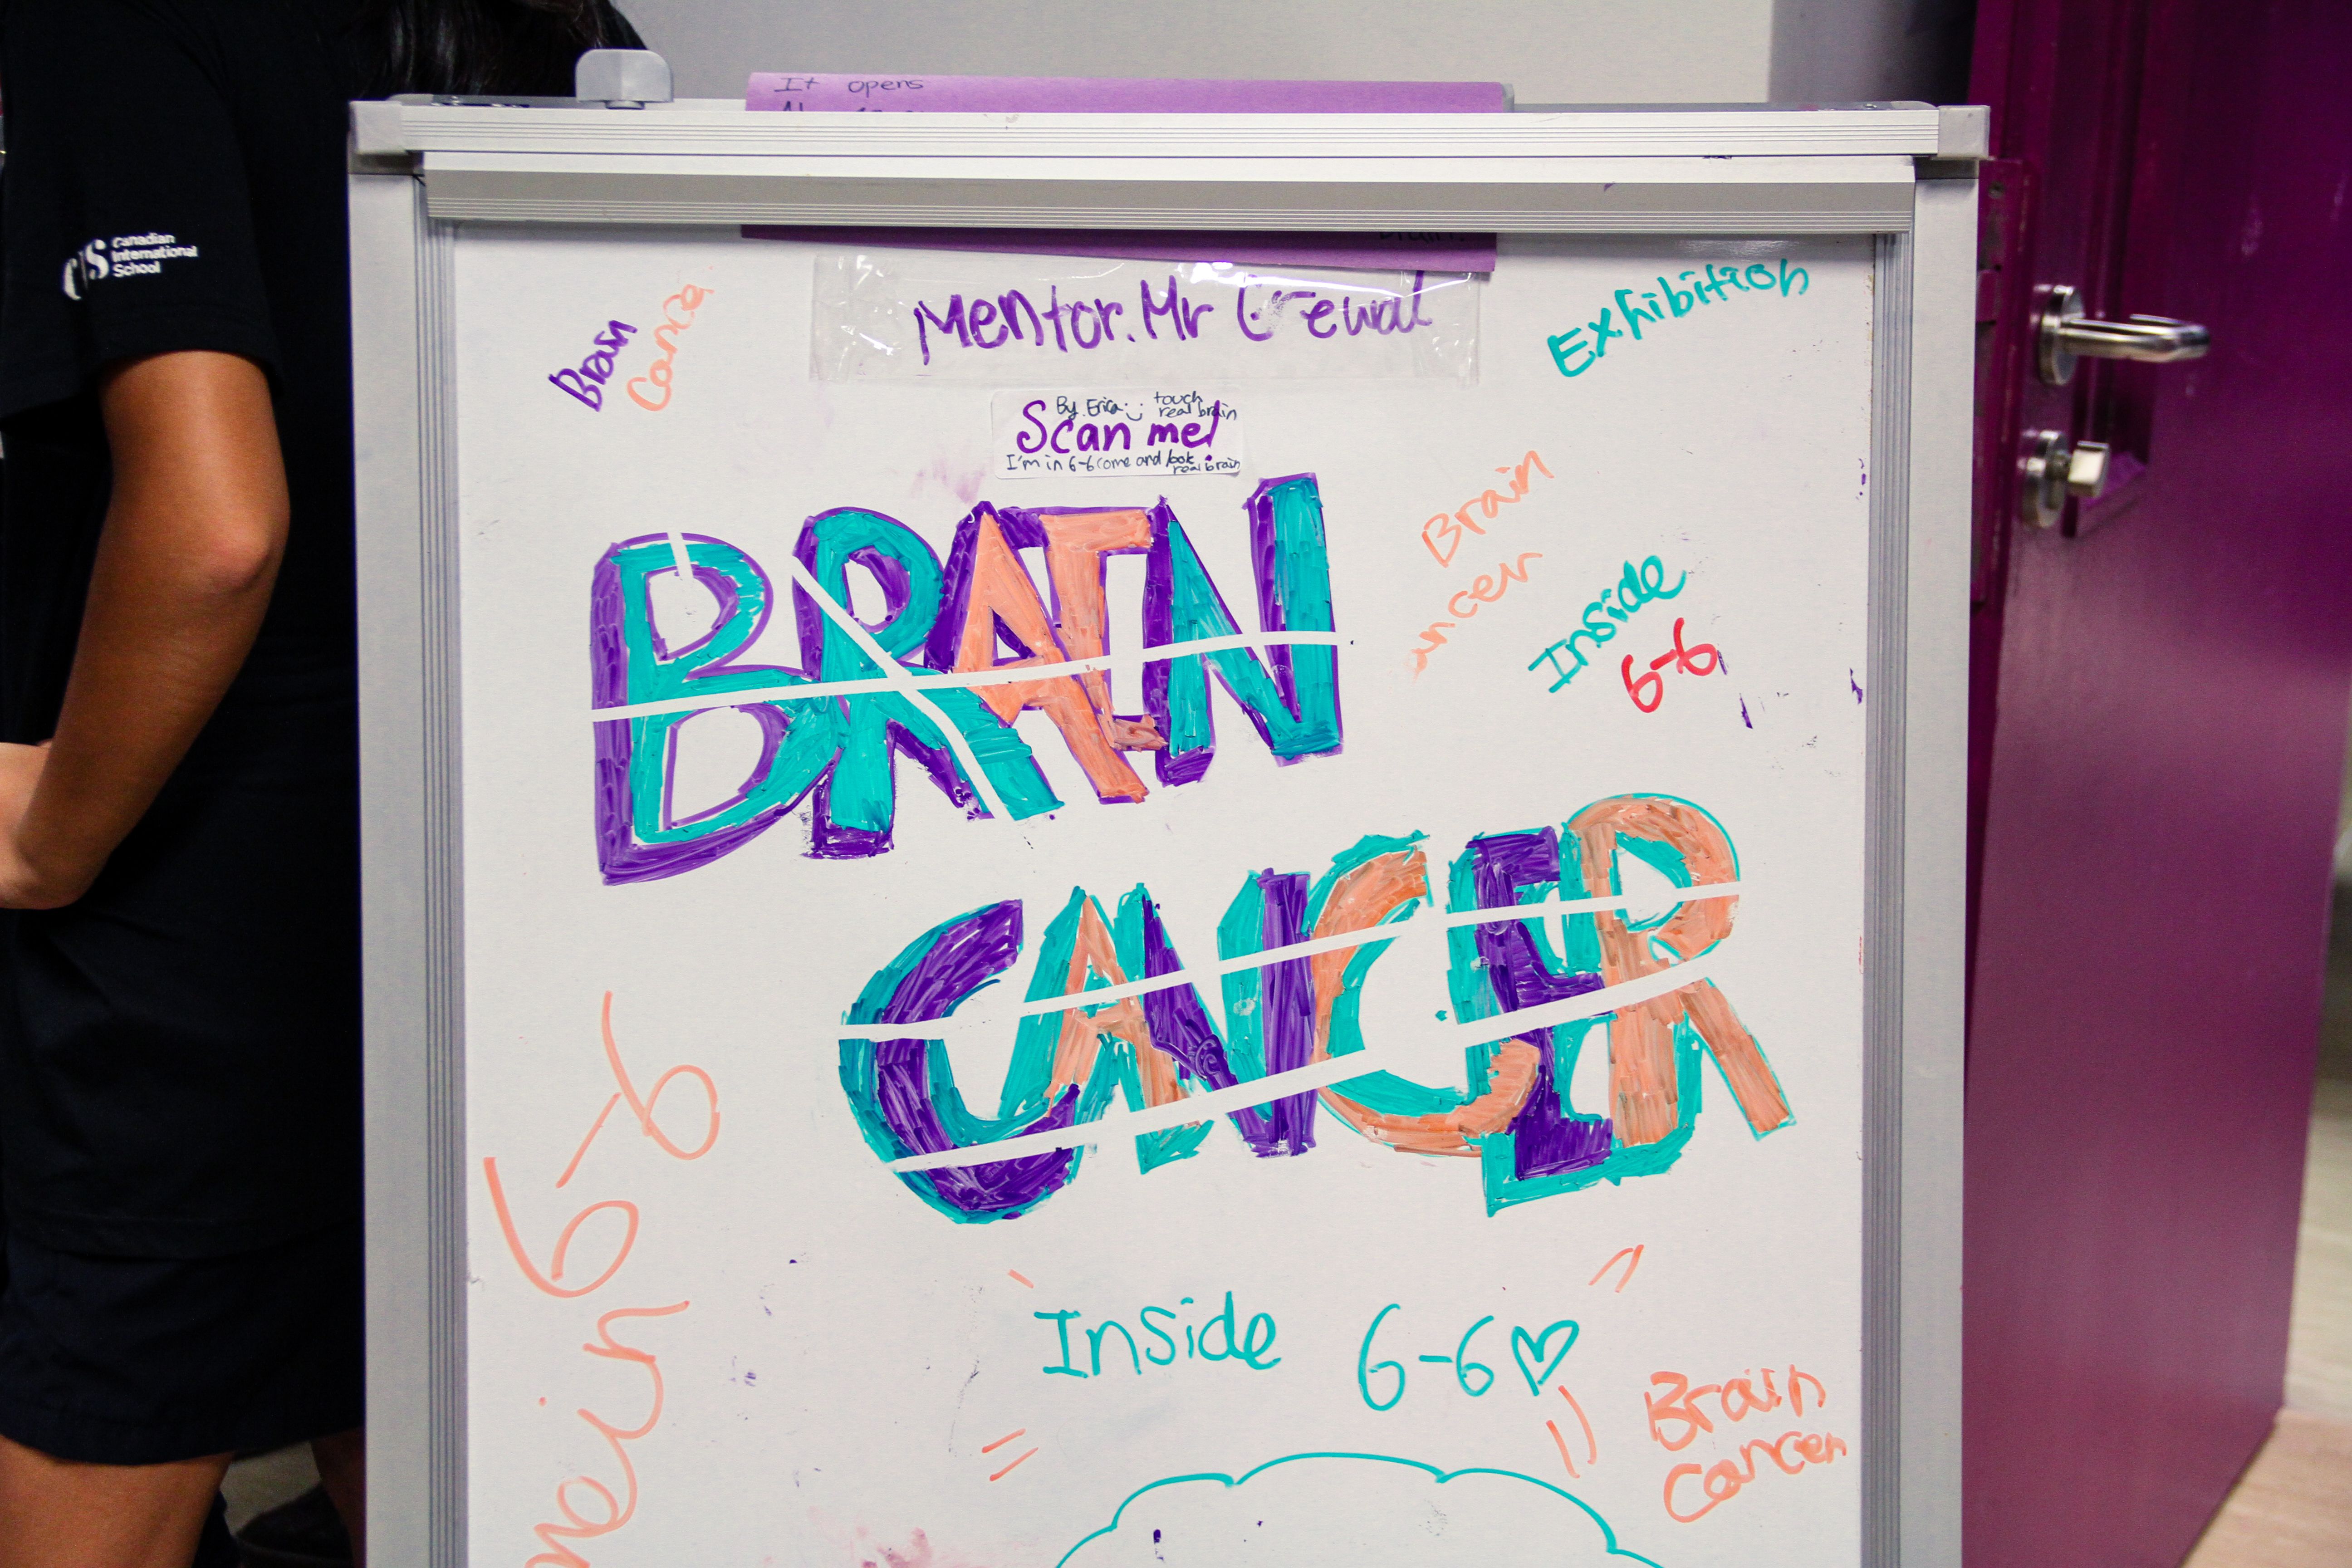 It opens
CIS Canadian
International
School
Mentor. Mr Grewal
Exhibition
Brain
Cance
By Erica
touch
real brain
Scan me!
I'm in 6-6 come and look
real brain
BRAIN
Brain
ancer
Inside
6-6
CANCER
6-6
Inside 6-6
Brain
Cancer